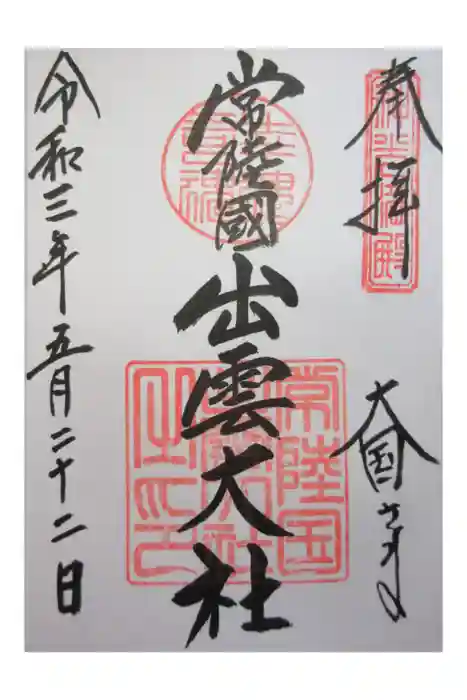 奉拝
大国さま
常陸國
出雲大社
常陸国
出雲大社
之印
令和三年五月二十二日